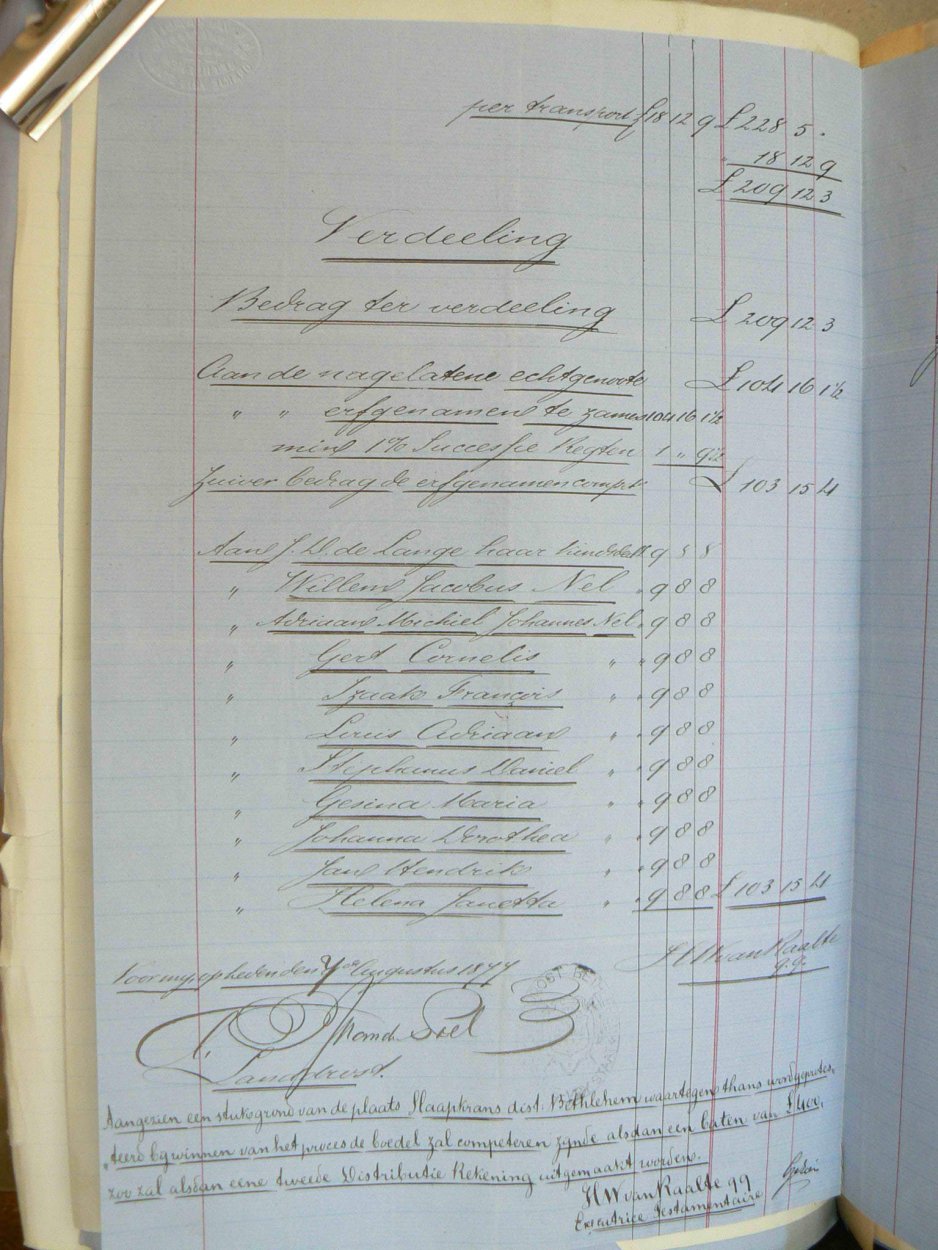 per transport £ 18 12 9 £ 228 5 .
" 18 12 9
£ 209 12 3
Verdeeling
Bedrag ter verdeeling £ 209 12 3
Aan de nagelatene echtgenoote £ 104 16 1½
" " erfgenamen te zamen 104 16 1½
min 1% Successie Regten 1 " 9½
Zuiver bedrag de erfgenamen compt. £ 103 15 4
Aan J. D. de Lange haar kindsdeel 9 8 8
" Willem Jacobus Nel " 9 8 8
" Adriaan Michiel Johannes Nel " 9 8 8
" Gert Cornelis " " 9 8 8
" Izaak François " " 9 8 8
" Louis Adriaan " " 9 8 8
" Stephanus Daniel " " 9 8 8
" Gesina Maria " " 9 8 8
" Johanna Dorothea " " 9 8 8
" Jan Hendrik " " 9 8 8
" Helena Janetta " " 9 8 8 £ 103 15 4
H W van Raalte
q.q.
Voor my, op heden den 7de Augustus 1877
Landdrost.
Aangezien een stuk grond van de plaats Slaapkrans dist. Bethlehem waartegen thans word geprotes-
"teerd by winnen van het proces de boedel zal competeren zynde alsdan een baten van £ 400.
zoo zal alsdan eene tweede Distributie Rekening uitgemaakt worden.
H W van Raalte qq
Executrice Testamentaire